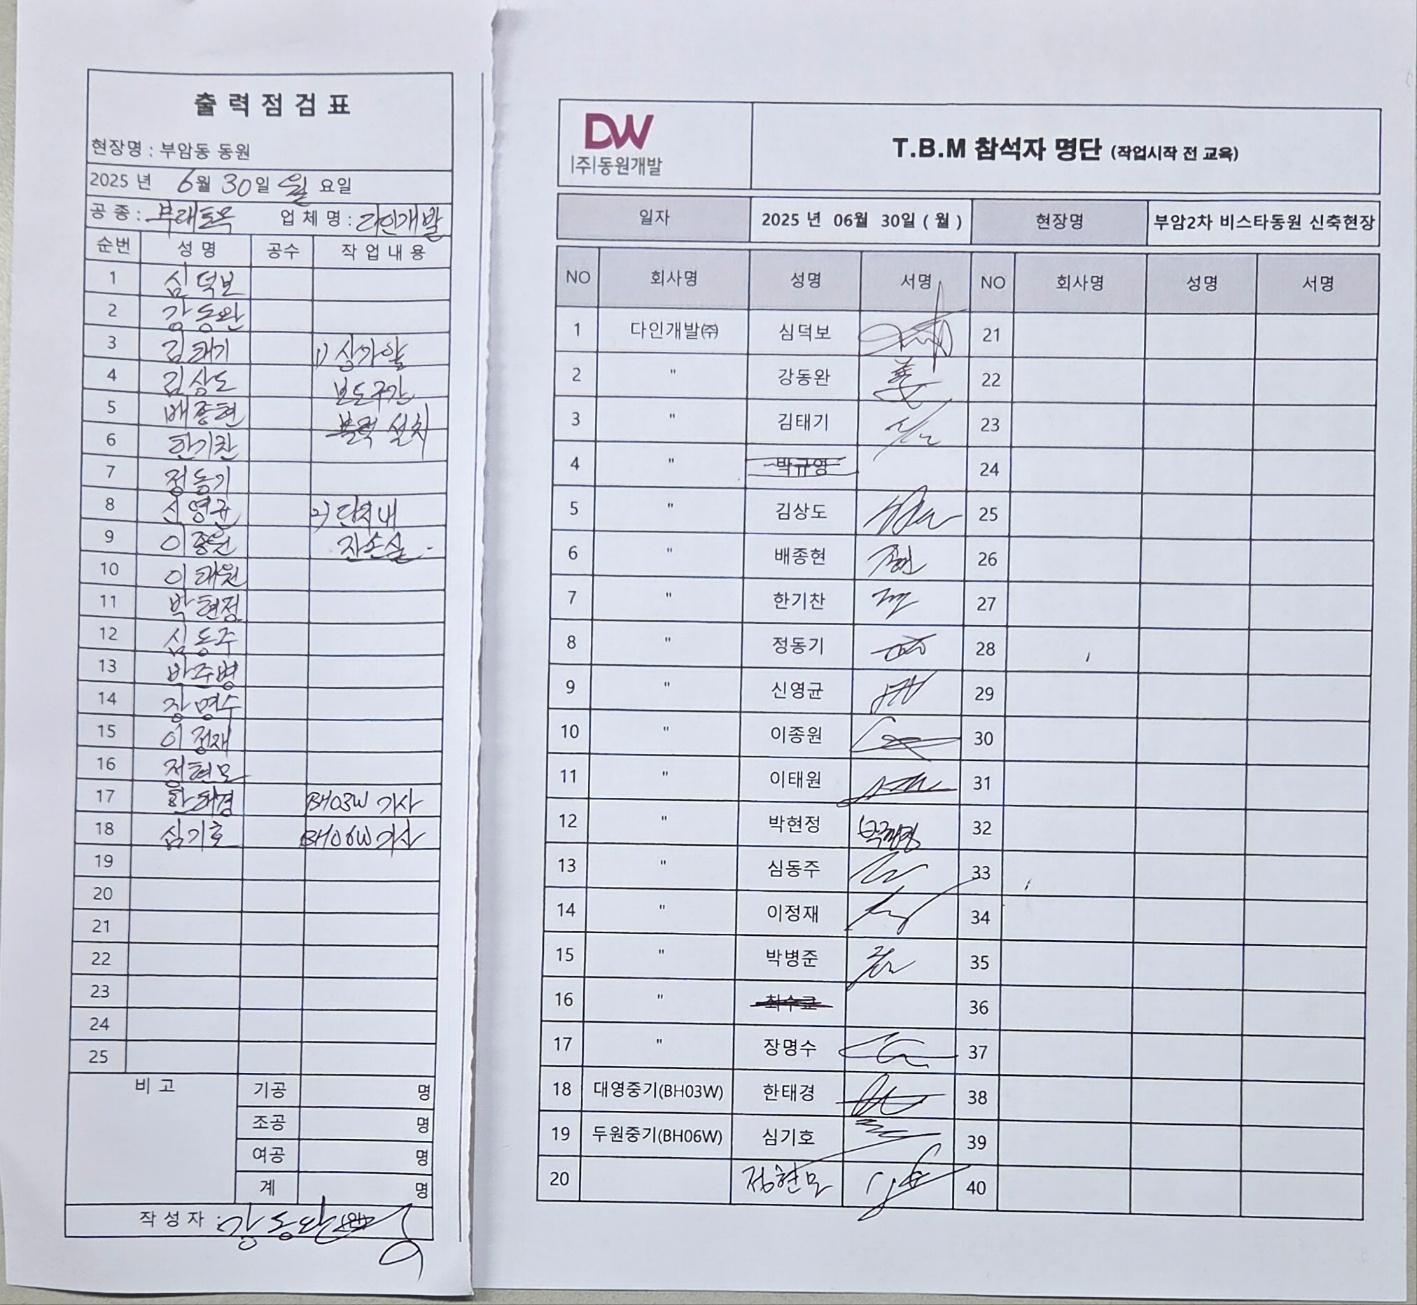 출력점검표
현장명 : 부암동 동원
2025 년 6월 30일 월 요일
공 종 : 부대토목 업 체 명 : 다인개발
순번 성 명 공수 작 업 내 용
1 심덕보
2 강동완
3 김태기 1) 상가앞
4 김상도 보도구간
5 배종현 블럭 설치
6 한기찬
7 정동기
8 신영균 2) 단지내
9 이종원 잔손실
10 이태원
11 박현정
12 심동주
13 박주병
14 장명수
15 이정재
16 정현모
17 한태경 BH03W 기사
18 심기호 BH06W 기사
19
20
21
22
23
24
25
비 고 기공 명
조공 명
여공 명
계 명
작 성 자 : 강동완
DW
(주)동원개발
T.B.M 참석자 명단 (작업시작 전 교육)
일자 2025 년 06월 30일 ( 월 ) 현장명 부암2차 비스타동원 신축현장
NO 회사명 성명 서명 NO 회사명 성명 서명
1 다인개발㈜ 심덕보 21
2 " 강동완 22
3 " 김태기 23
4 " 박규영 24
5 " 김상도 25
6 " 배종현 26
7 " 한기찬 27
8 " 정동기 28
9 " 신영균 29
10 " 이종원 30
11 " 이태원 31
12 " 박현정 박현정 32
13 " 심동주 33
14 " 이정재 34
15 " 박병준 35
16 " 36
17 " 장명수 37
18 대영중기(BH03W) 한태경 38
19 두원중기(BH06W) 심기호 39
20 정현모 40